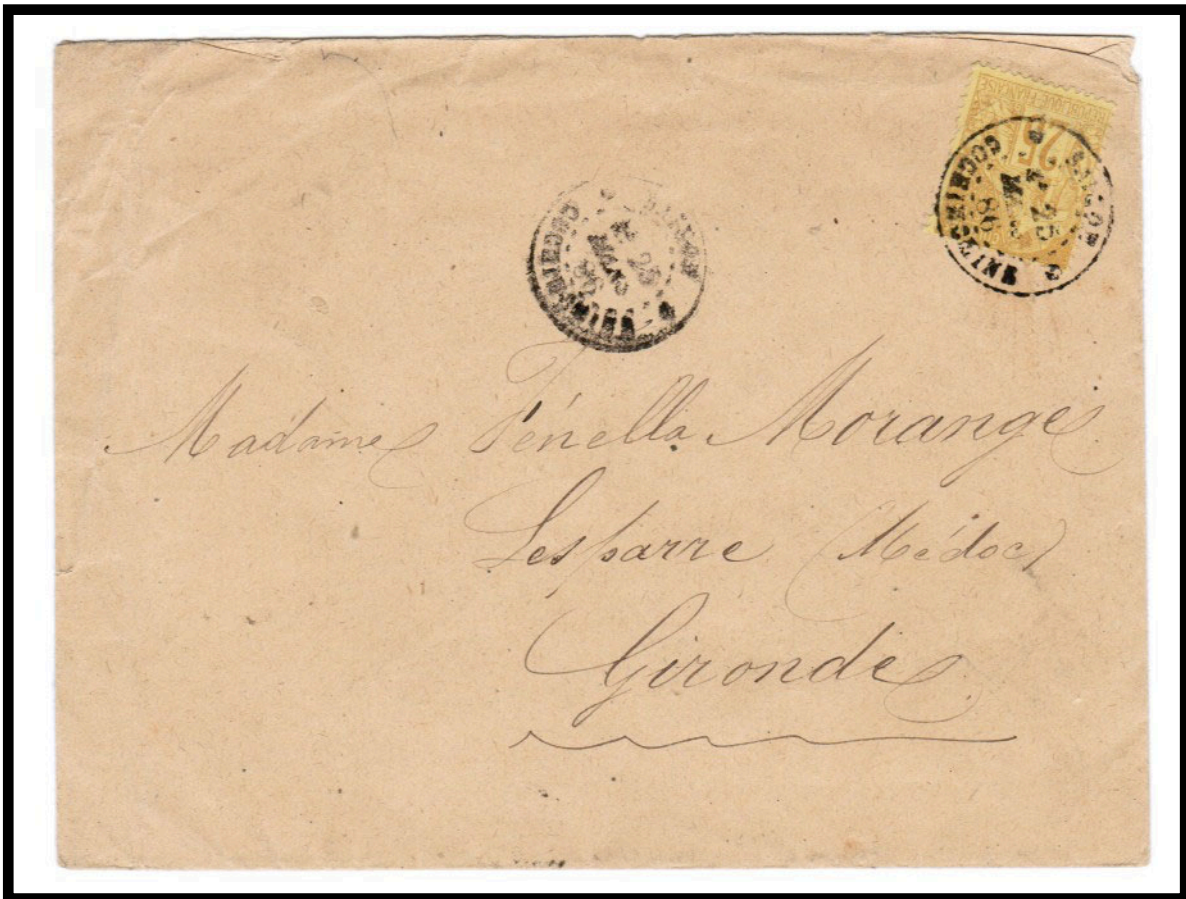 RÉPUBLIQUE FRANÇAISE
25
COCHINCHINE
25
MAI
86
COCHINCHINE
25
Madame Fénella Morange
Lesparre (Médoc)
Gironde